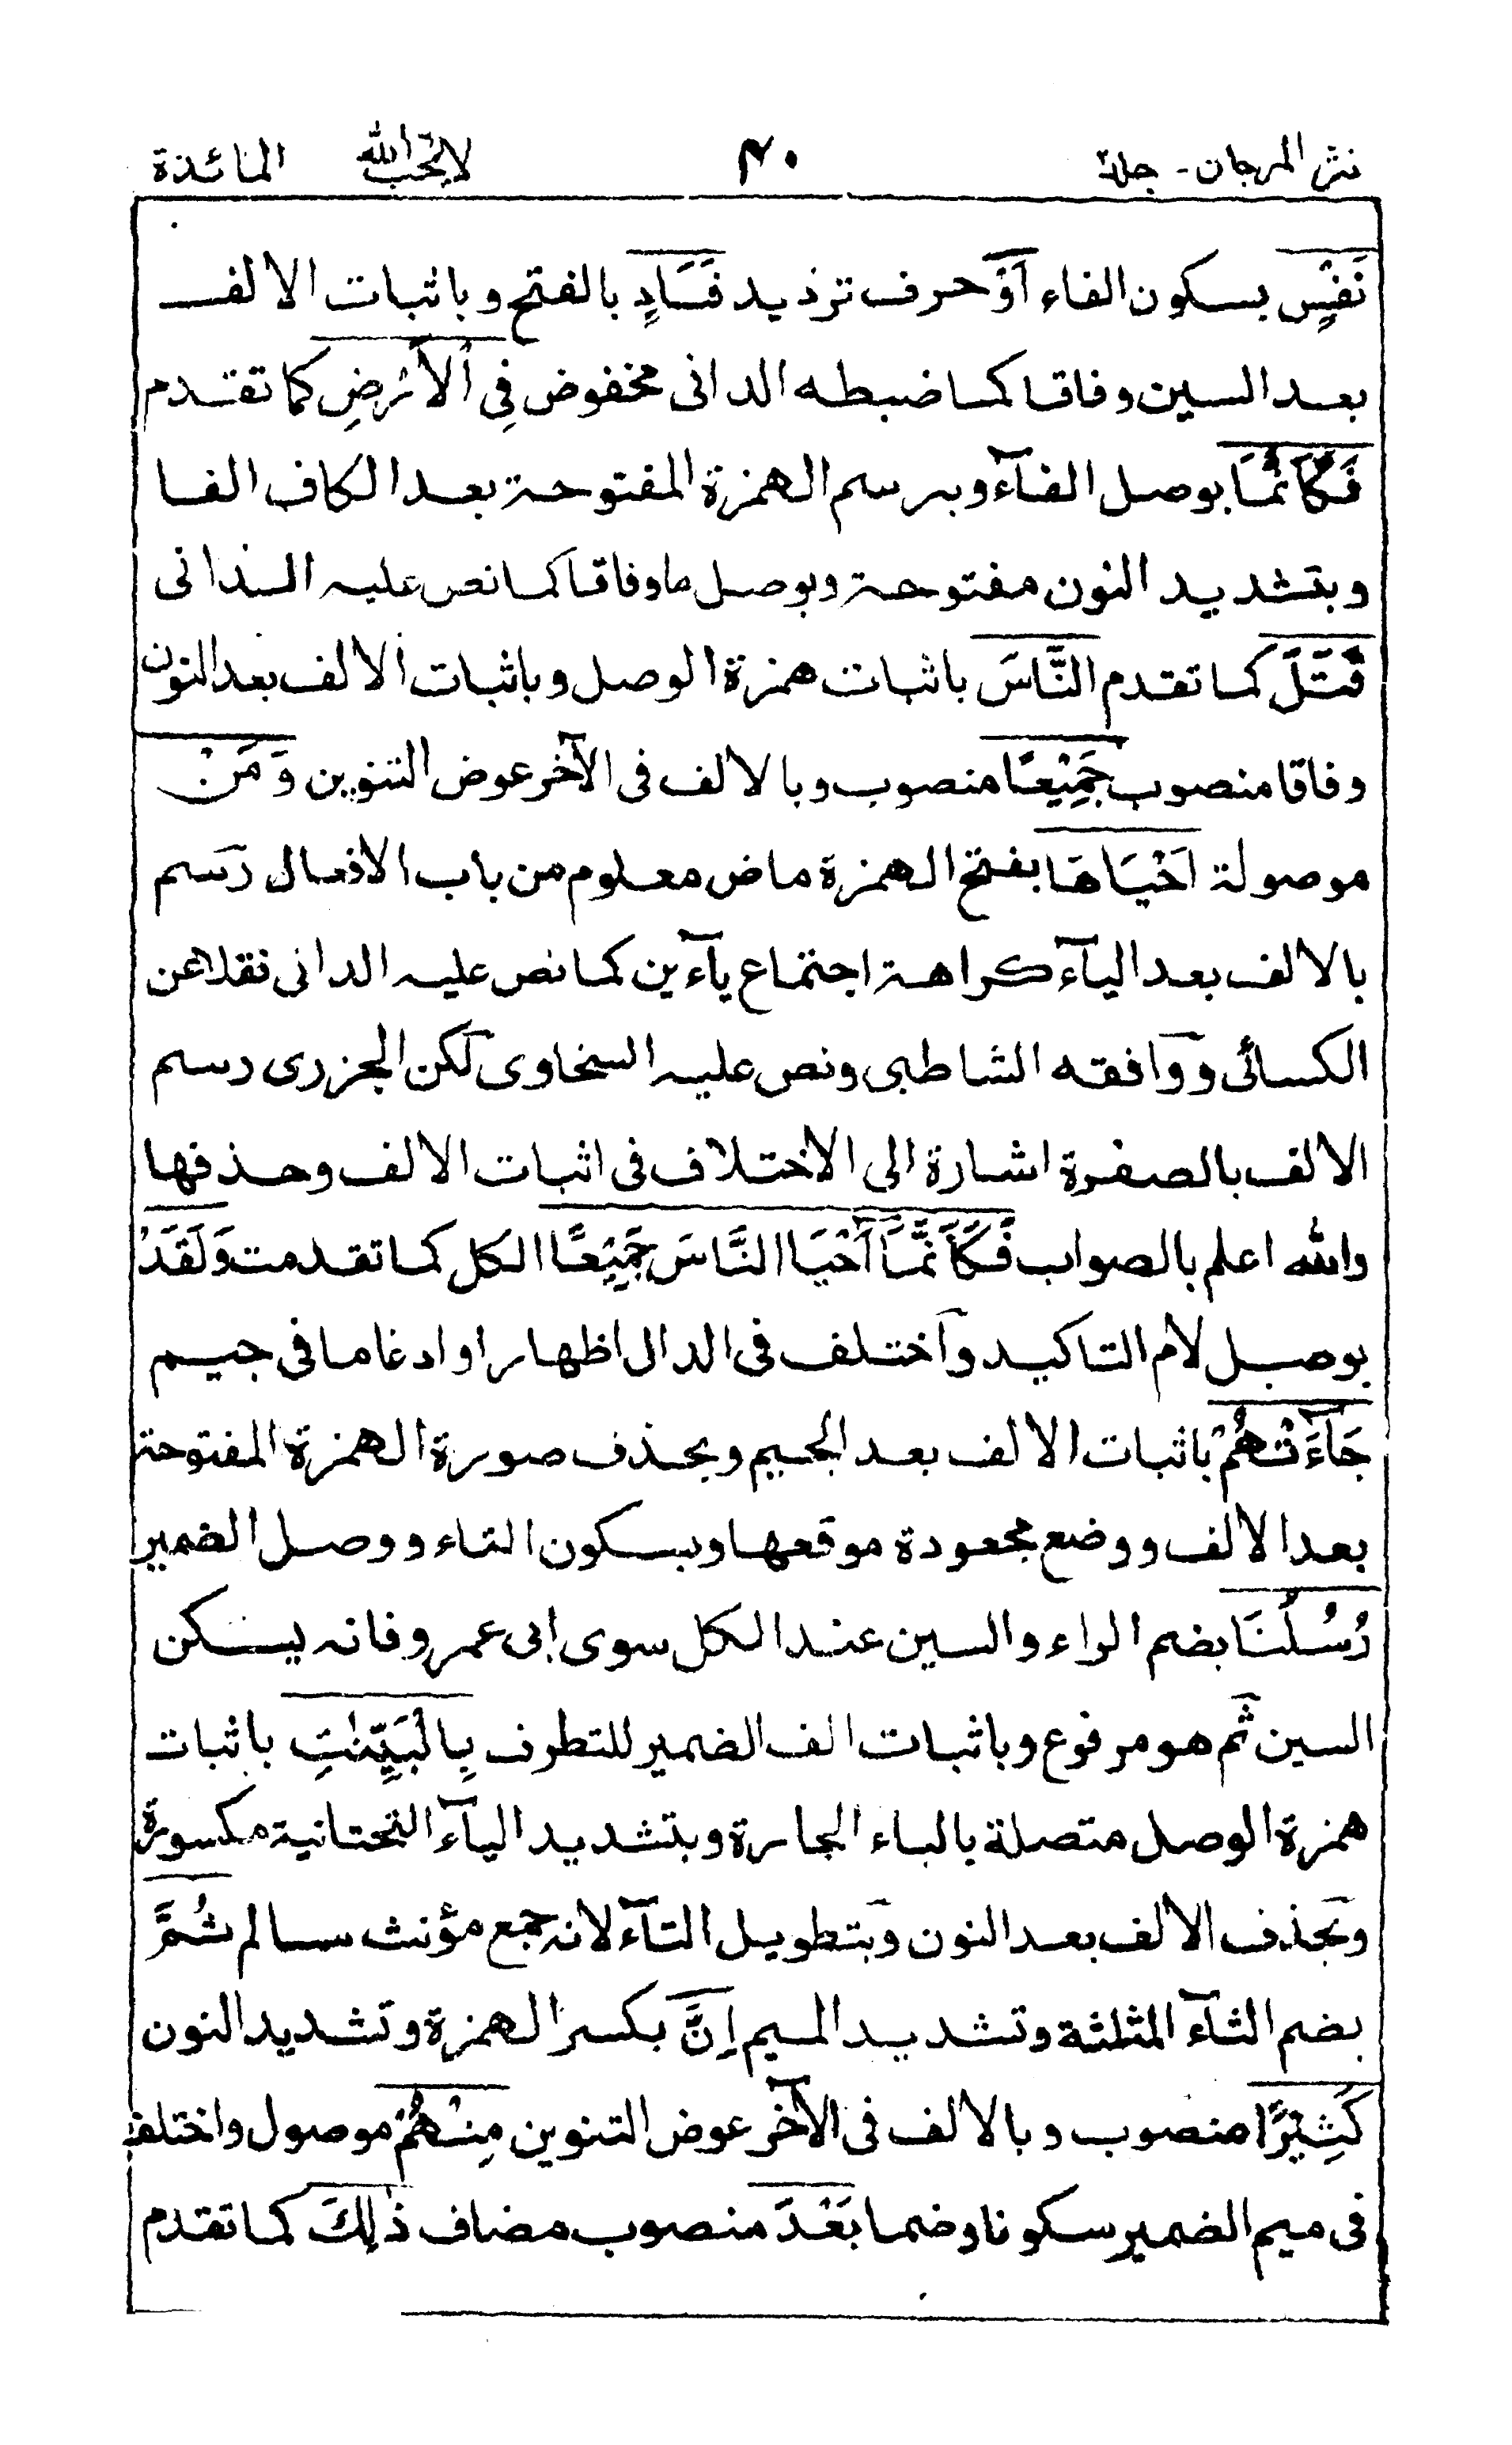 نثر المرجان - جلد
٤٠
لا يحب الله
المائدة
نَفْسٍ بسكون الفاء اَوْ حرف ترديد فَسَادٍ بالفتح وباثبات الالف
بعد السين وفاقا كما ضبطه الدانى مخفوض فِى الْاَرْضِ كما تقدم
فَكَاَنَّمَا بوصل الفآء وبرسم الهمزة المفتوحة بعد الكاف الفا
وبتشديد النون مفتوحة وبوصل ما وفاقا كما نص عليه الدانى
قَتَلَ كما تقدم النَّاسَ باثبات همزة الوصل وباثبات الالف بعد النون
وفاقا منصوب جَمِيْعًا منصوب وبالالف فى الآخر عوض التنوين وَمَنْ
موصولة اَحْيَاهَا بفتح الهمزة ماض معلوم من باب الافعال رسم
بالالف بعد اليآء كراهة اجتماع يآءين كما نص عليه الدانى نقلا عن
الكسائى ووافقه الشاطبى ونص عليه السخاوى لكن الجزرى رسم
الالف بالصفرة اشارة الى الاختلاف فى اثبات الالف وحذفها
والله اعلم بالصواب فَكَاَنَّمَآ اَحْيَا النَّاسَ جَمِيْعًا الكل كما تقدمت وَلَقَدْ
بوصل لام التاكيد واختلف فى الدال اظهارا وادغاما فى جيم
جَآءَتْهُمْ باثبات الالف بعد الجيم وبحذف صورة الهمزة المفتوحة
بعد الالف ووضع مجعودة موقعها وبسكون التاء ووصل الضمير
رُسُلُنَا بضم الراء والسين عند الكل سوى ابى عمرو فانه يسكن
السين ثم هو مرفوع وباثبات الف الضمير للتطرف بِالْبَيِّنٰتِ باثبات
همزة الوصل متصلة بالباء الجارة وبتشديد اليآء التحتانية مكسورة
وبحذف الالف بعد النون وبتطويل التآء لانه جمع مؤنث سالم ثُمَّ
بضم الثآء المثلثة وتشديد الميم اِنَّ بكسر الهمزة وتشديد النون
كَثِيْرًا منصوب وبالالف فى الآخر عوض التنوين مِنْهُمْ موصول واختلف
فى ميم الضمير سكونا وضما بَعْدَ منصوب مضاف ذٰلِكَ كما تقدم